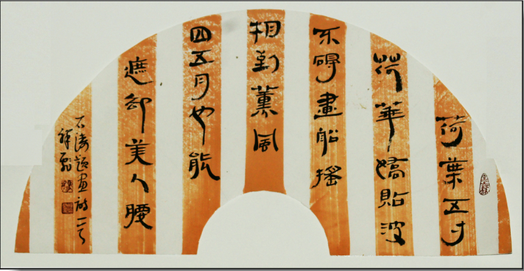 荷葉五寸
荷華嬌貼波
不碍畫船搖
相到薰風
四五月也能
遮却美人腰
石濤題畫詩一首